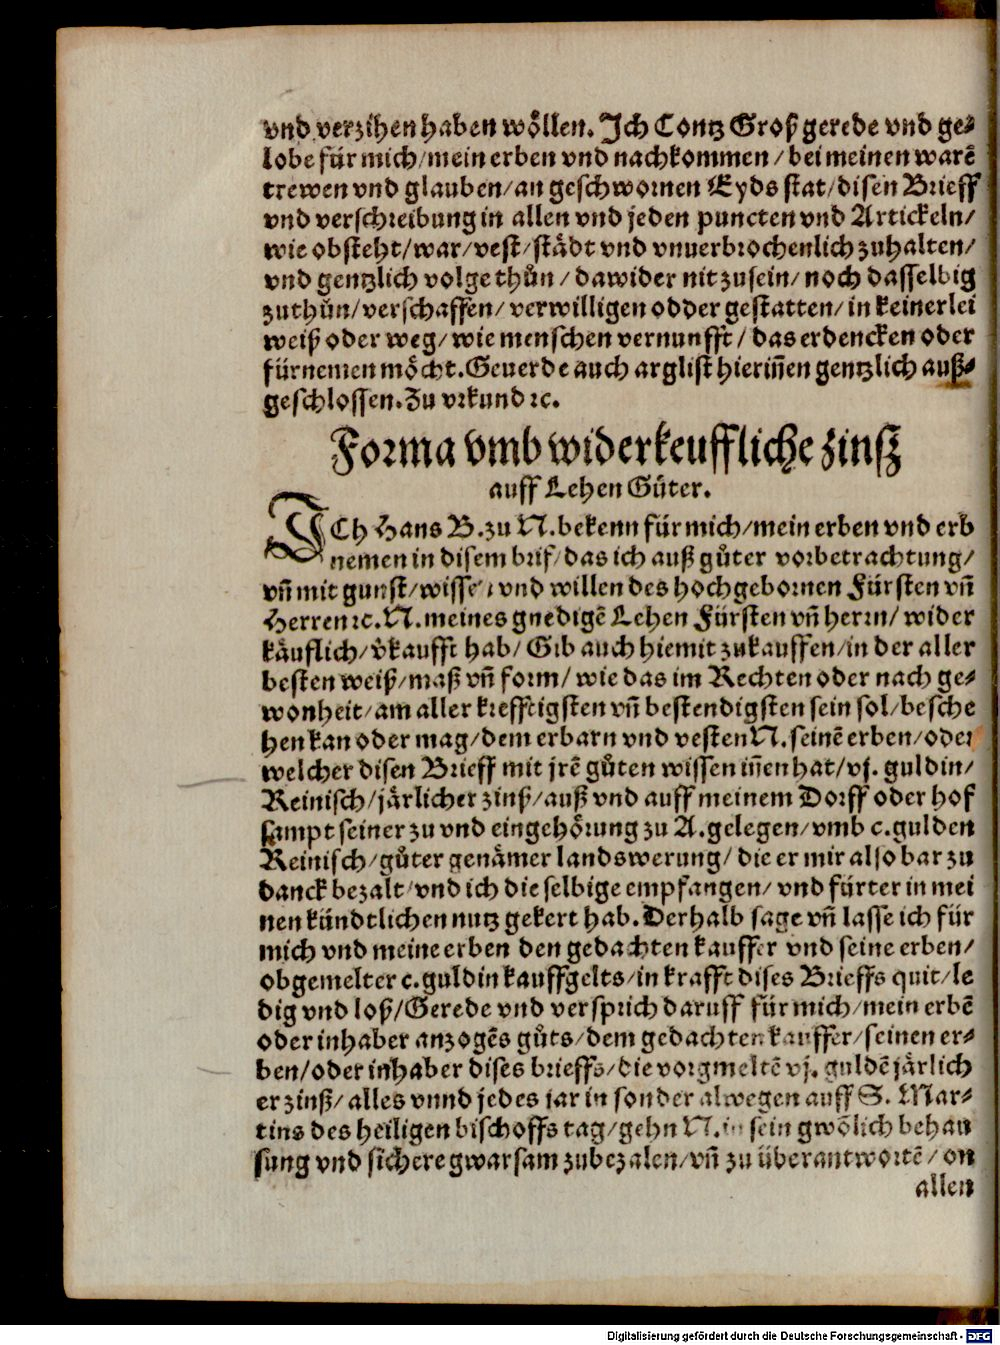 vnd verzihen haben wöllen. Ich Contz Groß gerede vnd ge⸗
lobe für mich/mein erben vnd nachkommen/bei meinen warē
trewen vnd glauben/an geschwornen Eyds stat/disen Brieff
vnd verschreibung in allen vnd jeden puncten vnd Artickeln/
wie obsteht/war/vest/städt vnd vnuerbrochenlich zuhalten/
vnd gentzlich volge thůn/dawider nit zusein/noch dasselbig
zuthůn/verschaffen/verwilligen odder gestatten/in keinerlei
weiß oder weg/wie menschen vernunfft/das erdencken oder
fürnemen möcht. Geuerde auch arglist hieriñen gentzlich auß⸗
geschlossen. Zu vrkund ꝛc.
Forma vmb widerkeuffliche zinsz
auff Lehen Gůter.
ICh Hans B. zu N. bekenn für mich/mein erben vnd erb
nemen in disem brif/das ich auß gůter vorbetrachtung/
vñ mit gunst/wissen vnd willen des hochgebornen Fürsten vñ
Herren ꝛc. N. meines gnedigē Lehen Fürsten vñ herrn/wider
käuflich/v̊kaufft hab/Gib auch hiemit zukauffen/in der aller
besten weiß/maß vñ form/wie das im Rechten oder nach ge⸗
wonheit/am aller krefftigsten vñ bestendigsten sein sol/besche
hen kan oder mag/dem erbarn vnd vesten N. seinē erben/oder
welcher disen Brieff mit jrē gůten wissen iñen hat/vj. guldin/
Reinisch/järlicher zinß/auß vnd auff meinem Dorff oder hof
sampt seiner zu vnd eingehörung zu A. gelegen/vmb c. gulden
Reinisch/gůter genämer landswerung/die er mir also bar zu
danck bezalt/vnd ich die selbige empfangen/vnd fürter in mei
nen kündtlichen nutz gekert hab. Derhalb sage vñ lasse ich für
mich vnd meine erben den gedachten kauffer vnd seine erben/
obgemelter c. guldin kauffgelts/in krafft dises Brieffs quit/le
dig vnd loß/Gerede vnd versprich daruff für mich/mein erbē
oder inhaber anzogēs gůts/dem gedachten kauffer/seinen er⸗
ben/oder inhaber dises brieffs/die vorgmeltē vj. guldē järlich
er zinß/alles vnnd jedes jar in sonder alwegen auff S. Mar⸗
tins des heiligen bischoffs tag/gehn N. in sein gwölich behau
sung vnd sichere gwarsam zubezalen/vñ zu überantwortē/on
allen
Digitalisierung gefördert durch die Deutsche Forschungsgemeinschaft - DFG